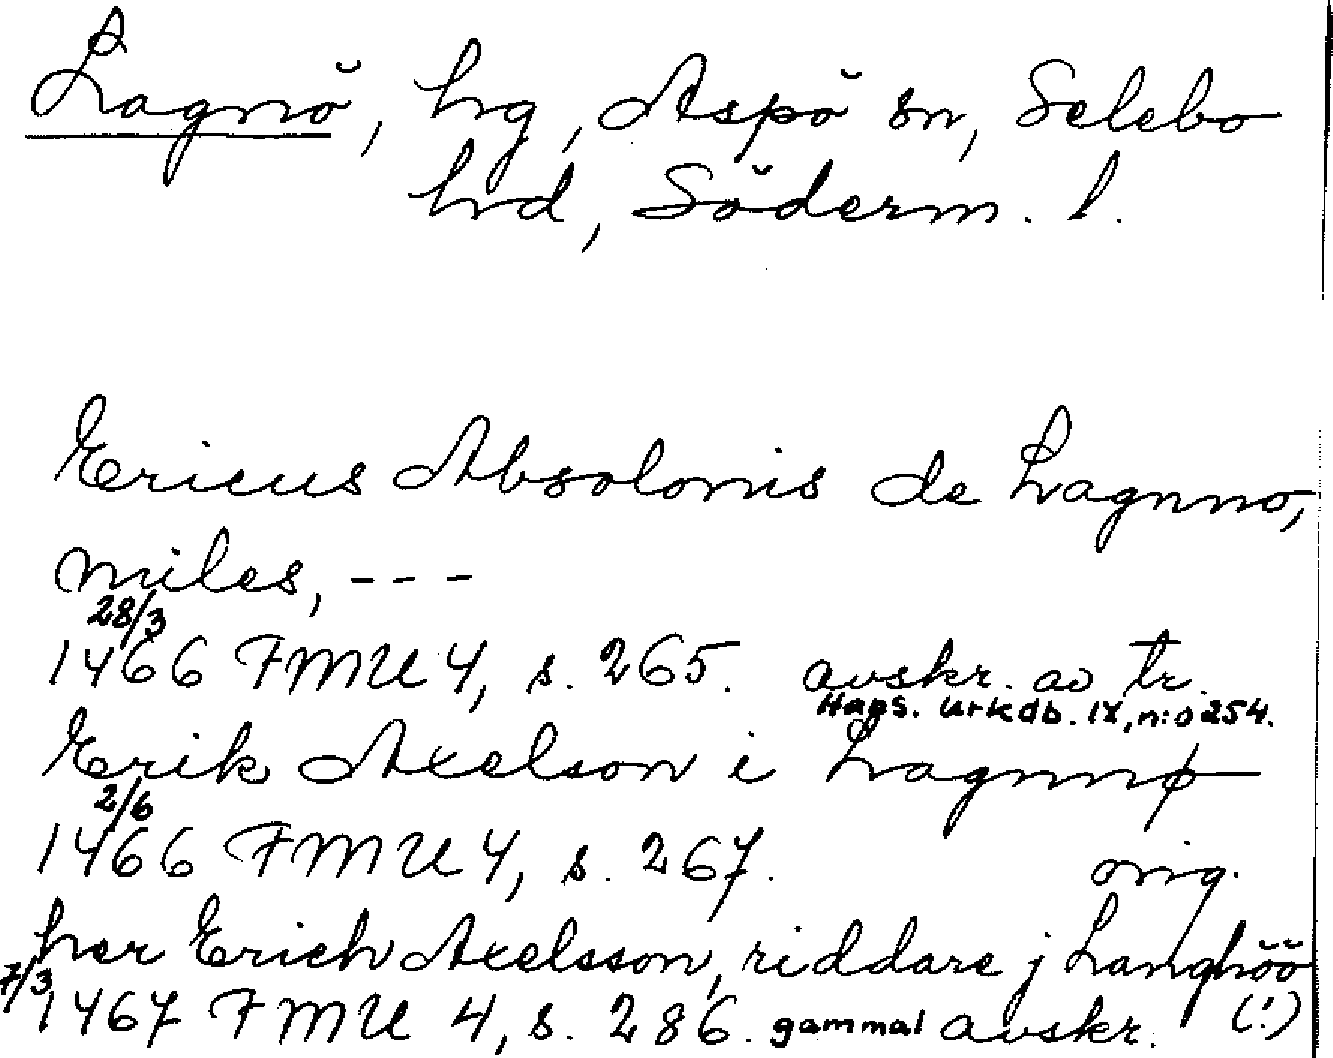 Lagnö, hg, Aspö sn, Selebo
hrd, Söderm. l.
Ericus Absolonis de Lagnno,
miles, ---
28/3
1466 FMU 4, s. 265. avskr. av tr.
Haps. Urkdb. IX, n:o 254.
Erik Axelson i Lagnnø
2/6
1466 FMU 4, s. 267. orig.
her Erich Axelsson, riddare j Langhöö
7/3 1467 FMU 4, s. 286. gammal avskr. (!)